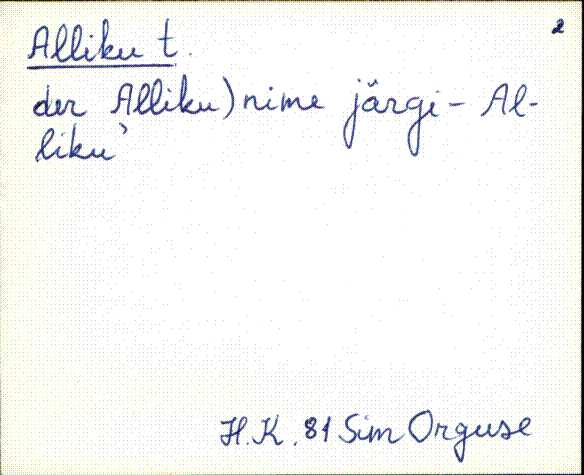 2
Alliku t.
der Alliku) nime järgi - Al-
liku'
H.K. 81 Sim Orguse